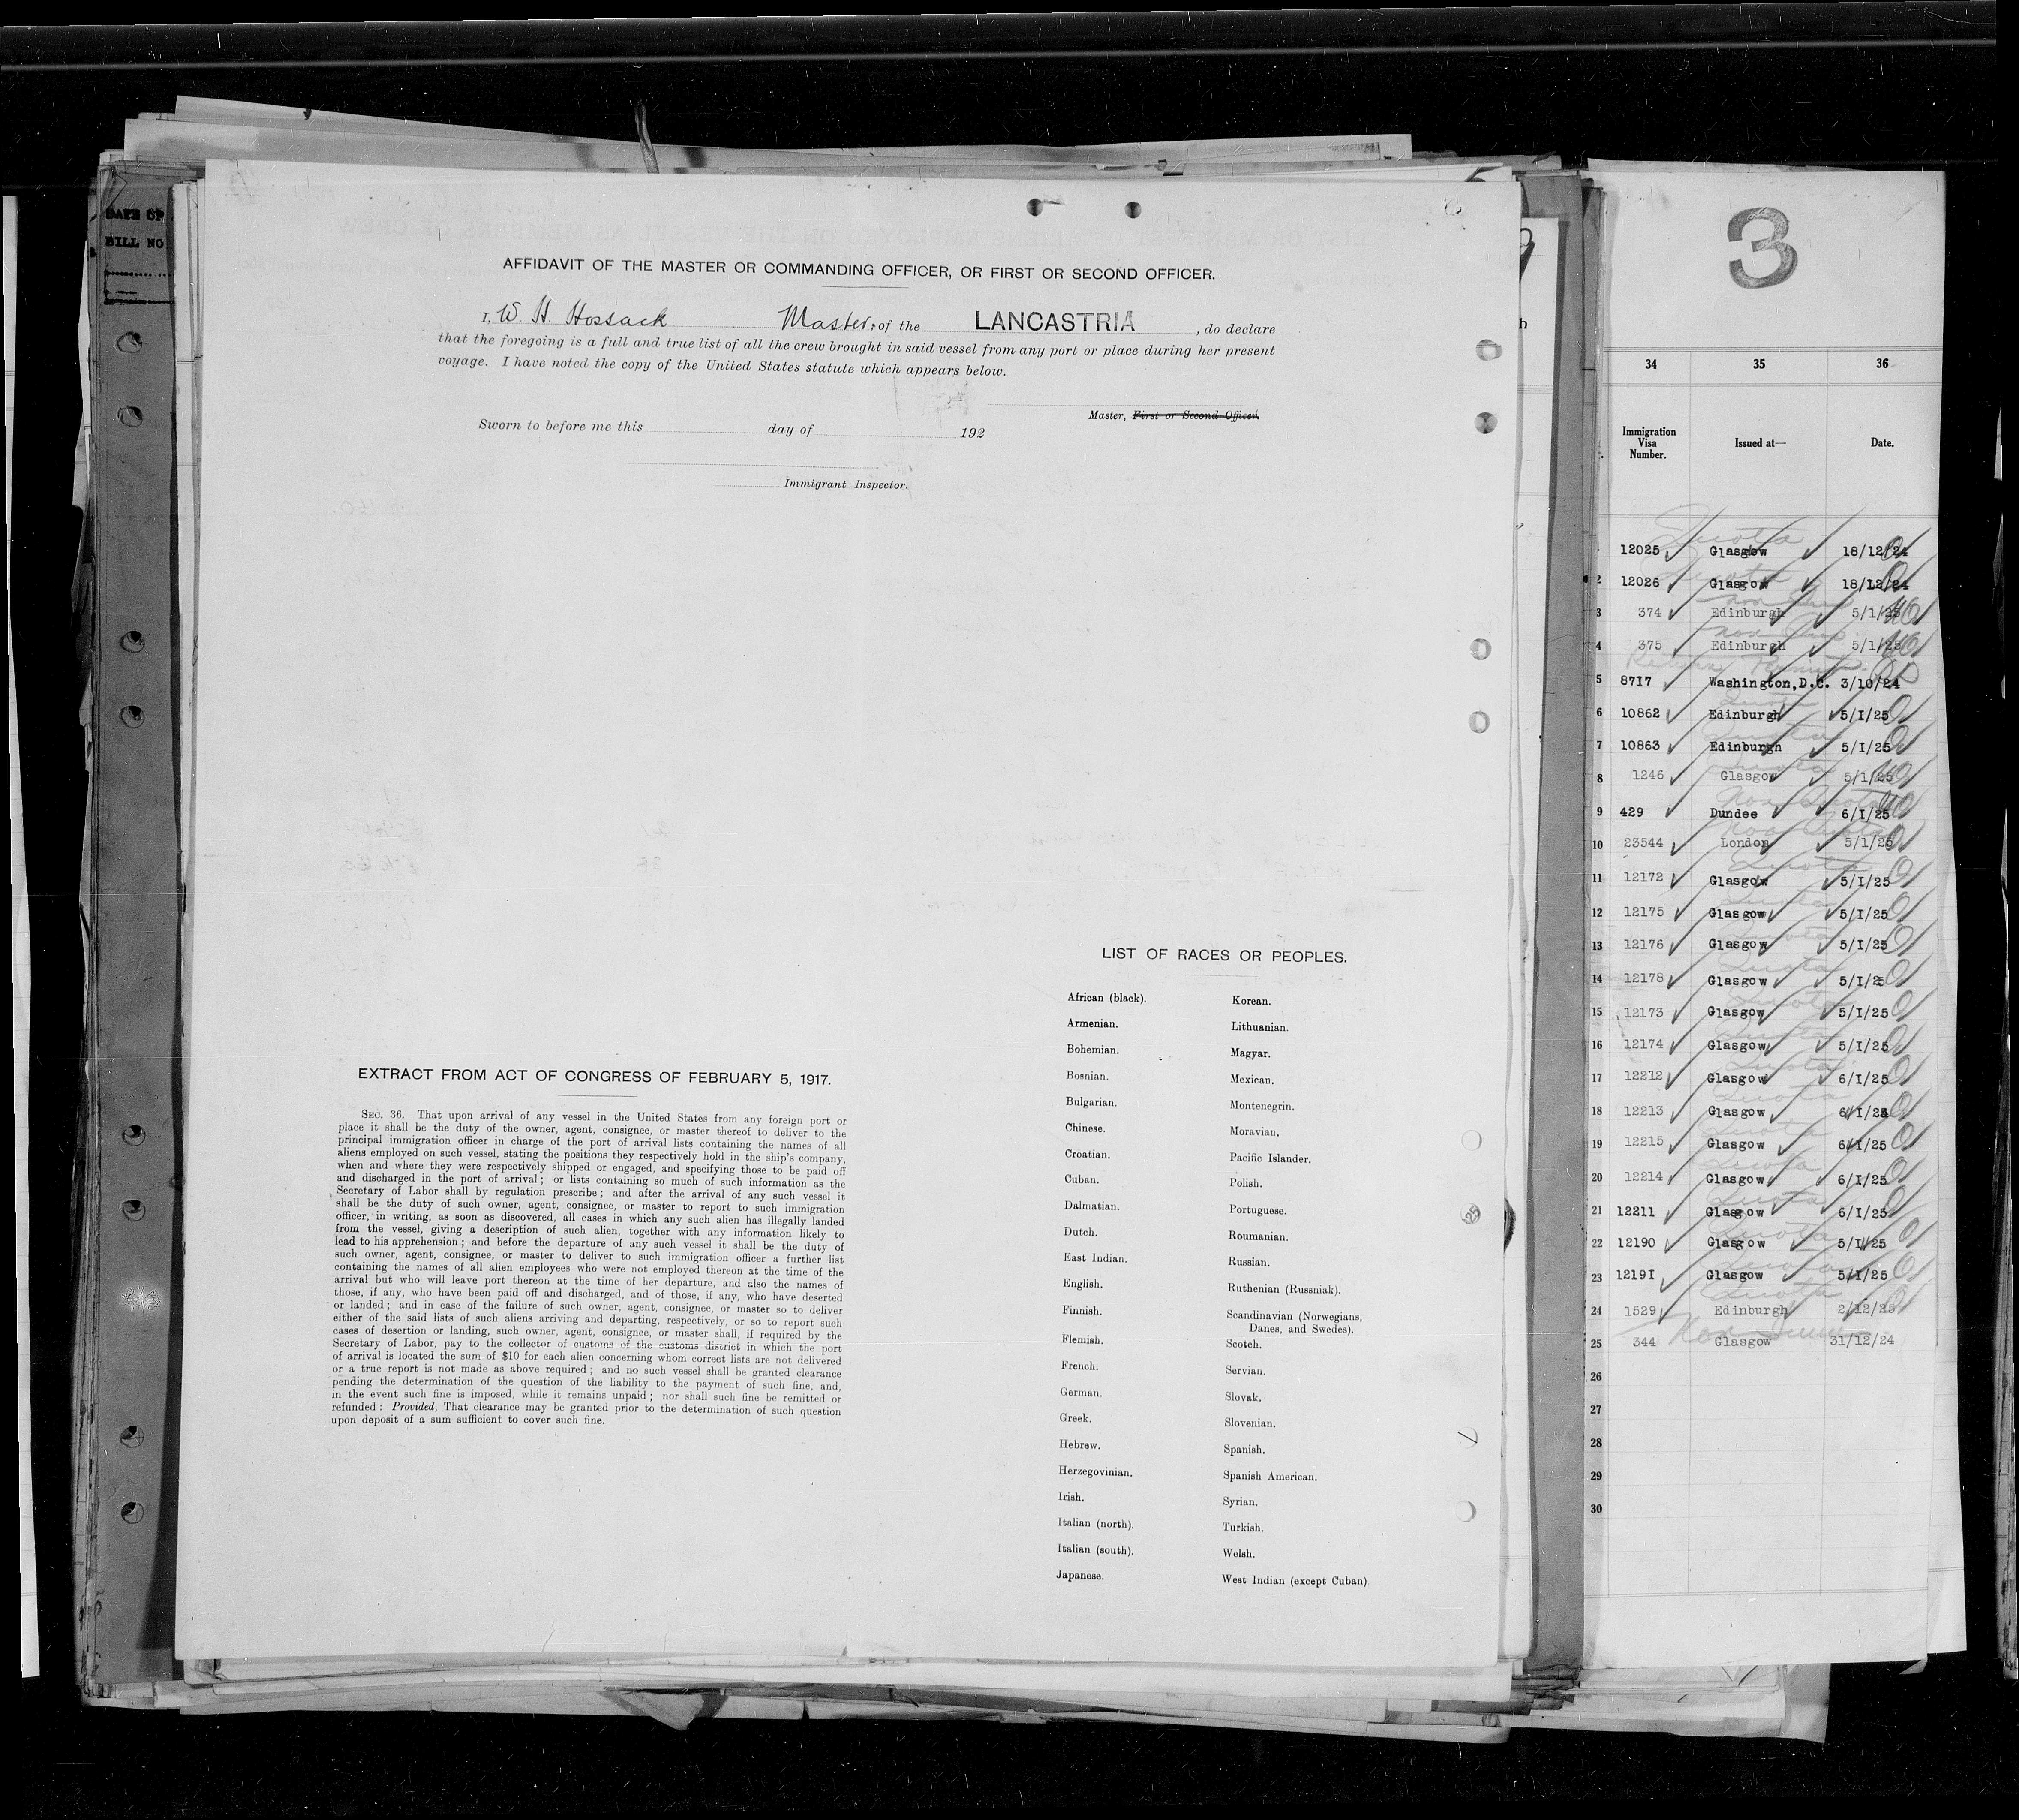 DATE OF
BILL NO
AFFIDAVIT OF THE MASTER OR COMMANDING OFFICER, OR FIRST OR SECOND OFFICER.
I, W. H. Hossack Master, of the LANCASTRIA, do declare
that the foregoing is a full and true list of all the crew brought in said vessel from any port or place during her present
voyage. I have noted the copy of the United States statute which appears below.
Master, First or Second Officer.
Sworn to before me this day of 192
Immigrant Inspector.
EXTRACT FROM ACT OF CONGRESS OF FEBRUARY 5, 1917.
SEC. 36. That upon arrival of any vessel in the United States from any foreign port or
place it shall be the duty of the owner, agent, consignee, or master thereof to deliver to the
principal immigration officer in charge of the port of arrival lists containing the names of all
aliens employed on such vessel, stating the positions they respectively hold in the ship's company,
when and where they were respectively shipped or engaged, and specifying those to be paid off
and discharged in the port of arrival; or lists containing so much of such information as the
Secretary of Labor shall by regulation prescribe; and after the arrival of any such vessel it
shall be the duty of such owner, agent, consignee, or master to report to such immigration
officer, in writing, as soon as discovered, all cases in which any such alien has illegally landed
from the vessel, giving a description of such alien, together with any information likely to
lead to his apprehension; and before the departure of any such vessel it shall be the duty of
such owner, agent, consignee, or master to deliver to such immigration officer a further list
containing the names of all alien employees who were not employed thereon at the time of the
arrival but who will leave port thereon at the time of her departure, and also the names of
those, if any, who have been paid off and discharged, and of those, if any, who have deserted
or landed; and in case of the failure of such owner, agent, consignee, or master so to deliver
either of the said lists of such aliens arriving and departing, respectively, or so to report such
cases of desertion or landing, such owner, agent, consignee, or master shall, if required by the
Secretary of Labor, pay to the collector of customs of the customs district in which the port
of arrival is located the sum of $10 for each alien concerning whom correct lists are not delivered
or a true report is not made as above required; and no such vessel shall be granted clearance
pending the determination of the question of the liability to the payment of such fine, and,
in the event such fine is imposed, while it remains unpaid; nor shall such fine be remitted or
refunded: Provided, That clearance may be granted prior to the determination of such question
upon deposit of a sum sufficient to cover such fine.
LIST OF RACES OR PEOPLES.
African (black). Korean.
Armenian. Lithuanian.
Bohemian. Magyar.
Bosnian. Mexican.
Bulgarian. Montenegrin.
Chinese. Moravian.
Croatian. Pacific Islander.
Cuban. Polish.
Dalmatian. Portuguese.
Dutch. Roumanian.
East Indian. Russian.
English. Ruthenian (Russniak).
Finnish. Scandinavian (Norwegians,
Danes, and Swedes).
Flemish. Scotch.
French. Servian.
German. Slovak.
Greek. Slovenian.
Hebrew. Spanish.
Herzegovinian. Spanish American.
Irish. Syrian.
Italian (north). Turkish.
Italian (south). Welsh.
Japanese. West Indian (except Cuban)
3
34 35 36
Immigration
Visa
Number. Issued at— Date.
12025 Glasgow 18/12/24
2 12026 Glasgow 18/12/24
3 374 Edinburgh 5/1/25
4 375 Edinburgh 5/1/25
5 8717 Washington,D.C. 3/10/24
6 10862 Edinburgh 5/I/25
7 10863 Edinburgh 5/I/25
8 1246 Glasgow 5/1/25
9 429 Dundee 6/I/25
10 23544 London 5/1/25
11 12172 Glasgow 5/I/25
12 12175 Glasgow 5/I/25
13 12176 Glasgow 5/I/25
14 12178 Glasgow 5/I/25
15 12173 Glasgow 5/I/25
16 12174 Glasgow 5/I/25
17 12212 Glasgow 6/I/25
18 12213 Glasgow
19 12215 Glasgow 6/I/25
20 12214 Glasgow 6/I/25
21 12211 Glasgow 6/I/25
22 12190 Glasgow 5/I/25
23 1219I Glasgow 5/I/25
24 1529 Edinburgh
25 344 Glasgow 31/12/24
26
27
28
29
30